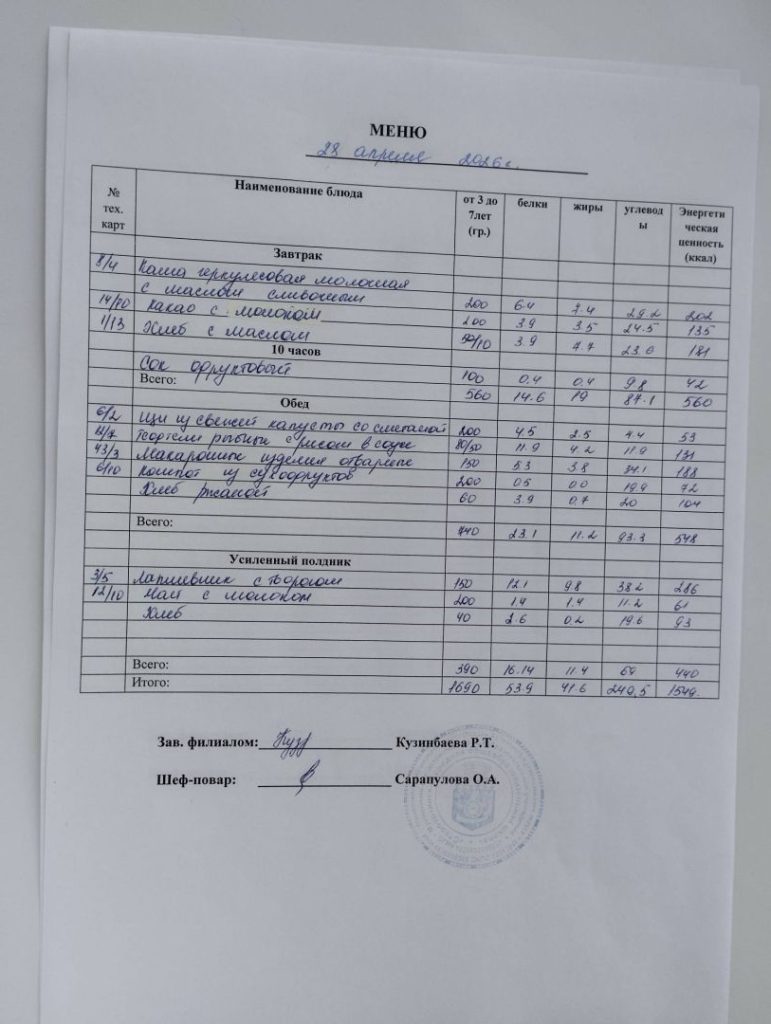 МЕНЮ
28 апреля 2026 г.
№ тех. карт Наименование блюда от 3 до 7лет (гр.) белки жиры углевод ы Энергети ческая ценность (ккал)
Завтрак
8/4 Каша геркулесовая молочная
с маслом сливочным 200 6.4 7.4 29.2 202
14/10 Какао с молоком 200 3.9 3.5 24.5 135
1/13 Хлеб с маслом 50/10 3.9 7.7 23.6 181
10 часов
Сок фруктовый 100 0.4 0.4 9.8 42
Всего: 560 14.6 19 87.1 560
Обед
6/2 Щи из свежей капусты со сметаной 200 4.5 2.5 7.4 53
12/7 Тефтели рыбные с рисом в соусе 80/50 11.9 4.2 11.9 131
43/3 Макаронные изделия отварные 150 5.3 3.8 34.1 188
6/10 Компот из сухофруктов 200 0.5 0.0 19.9 72
Хлеб ржаной 60 3.9 0.7 20 104
Всего: 740 23.1 11.2 93.3 548
Усиленный полдник
3/5 Лапшевник с творогом 150 12.1 9.8 38.2 286
12/10 Чай с молоком 200 1.4 1.4 11.2 61
Хлеб 40 2.6 0.2 19.6 93
Всего: 390 16.14 11.4 69 440
Итого: 1690 53.9 41.6 249.5 1549.
Зав. филиалом: Кузинбаева Р.Т.
Шеф-повар: Сарапулова О.А.